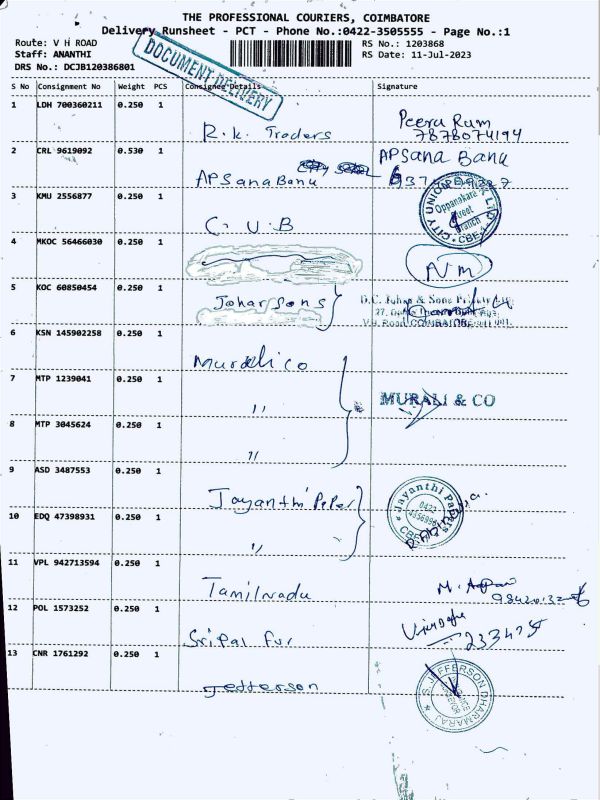 THE PROFESSIONAL COURIERS, COIMBATORE
Delivery Runsheet - PCT - Phone No.:0422-3505555 - Page No.:1
Route: V H ROAD
RS No.: 1203868
Staff: ANANTHI
RS Date: 11-Jul-2023
DRS No.: DCJB120386801
DOCUMENT DELIVERY
S No Consignment No Weight PCS Consignee Details Signature
1 LDH 700360211 0.250 1
R.K. Traders Peeru Ram
7878074194
2 CRL 9619092 0.530 1
APSana Banu APSana Banu
3 KMU 2556877 0.250 1
C. U. B
CITY UNION BANK LTD
Oppanakara Street Branch
CBE-1
4 MKOC 56466030 0.250 1
NM
5 KOC 60850454 0.250 1
Johar Sons
D.C. Johar & Sons Private
V.H. Road COIMBATORE
6 KSN 145902258 0.250 1
Murali co
7 MTP 1239041 0.250 1
" MURALI & CO
8 MTP 3045624 0.250 1
"
9 ASD 3487553 0.250 1
Jayanthi Paper
Jayanthi Papers
0422
CBE
10 EDQ 47398931 0.250 1
"
11 VPL 942713594 0.250 1
Tamilnadu M.
12 POL 1573252 0.250 1
Sripal fur
233425
13 CNR 1761292 0.250 1
Jefferson
S. JEFFERSON DHARMARAJ